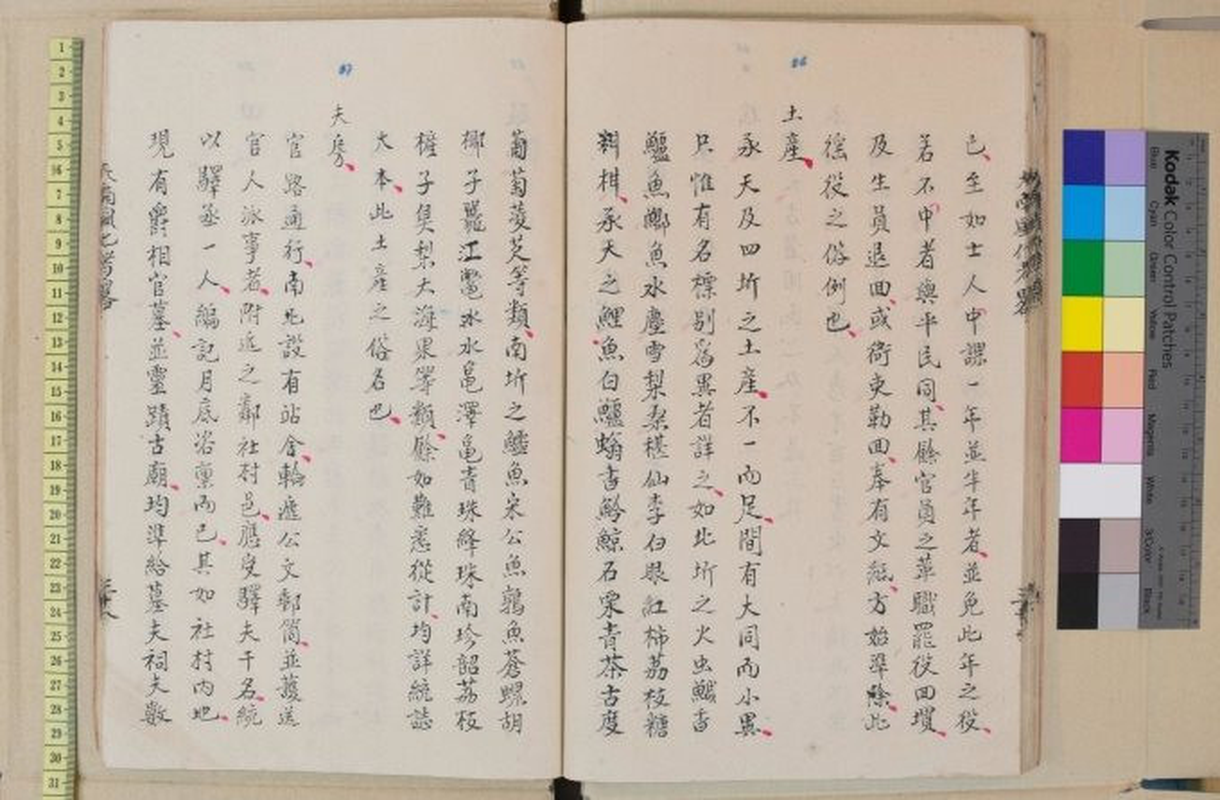 26
已至如士人中課一年並半年者並免此年之役
若不中者與平民同其餘官員之革職罷役回壩
及生員退回或衙吏勒回奉有文紙方始準除此
徭役之俗例也
土產
承天及四圻之土產不一而足間有大同而小異
只惟有名標別爲異者詳之如北圻之火虫香
料柑承天之鯉魚白鱸書鯨石栗青茶古度
鱷魚鄉魚水塵雪梨桑椹仙李白眼紅柿荔枝糖
37
葡萄菱芡等類南圻之鱷魚宋公魚鶉魚蒼螺胡
椰子江鱉水水黽澤黽青珠絳珠南珍韶荔枝
檳子臭梨大海果等類餘如難悉從計均詳統誌
大本此土產之俗名也
夫房
官路通行南北設有站舍輪遞公文郵筒並護送
官人派事者附近之鄰社村邑應受驛夫干名統
以驛丞一人編記月底咨稟而已其如社村內地
現有爵相官墓並靈蹟古廟均準給墓夫祠夫數